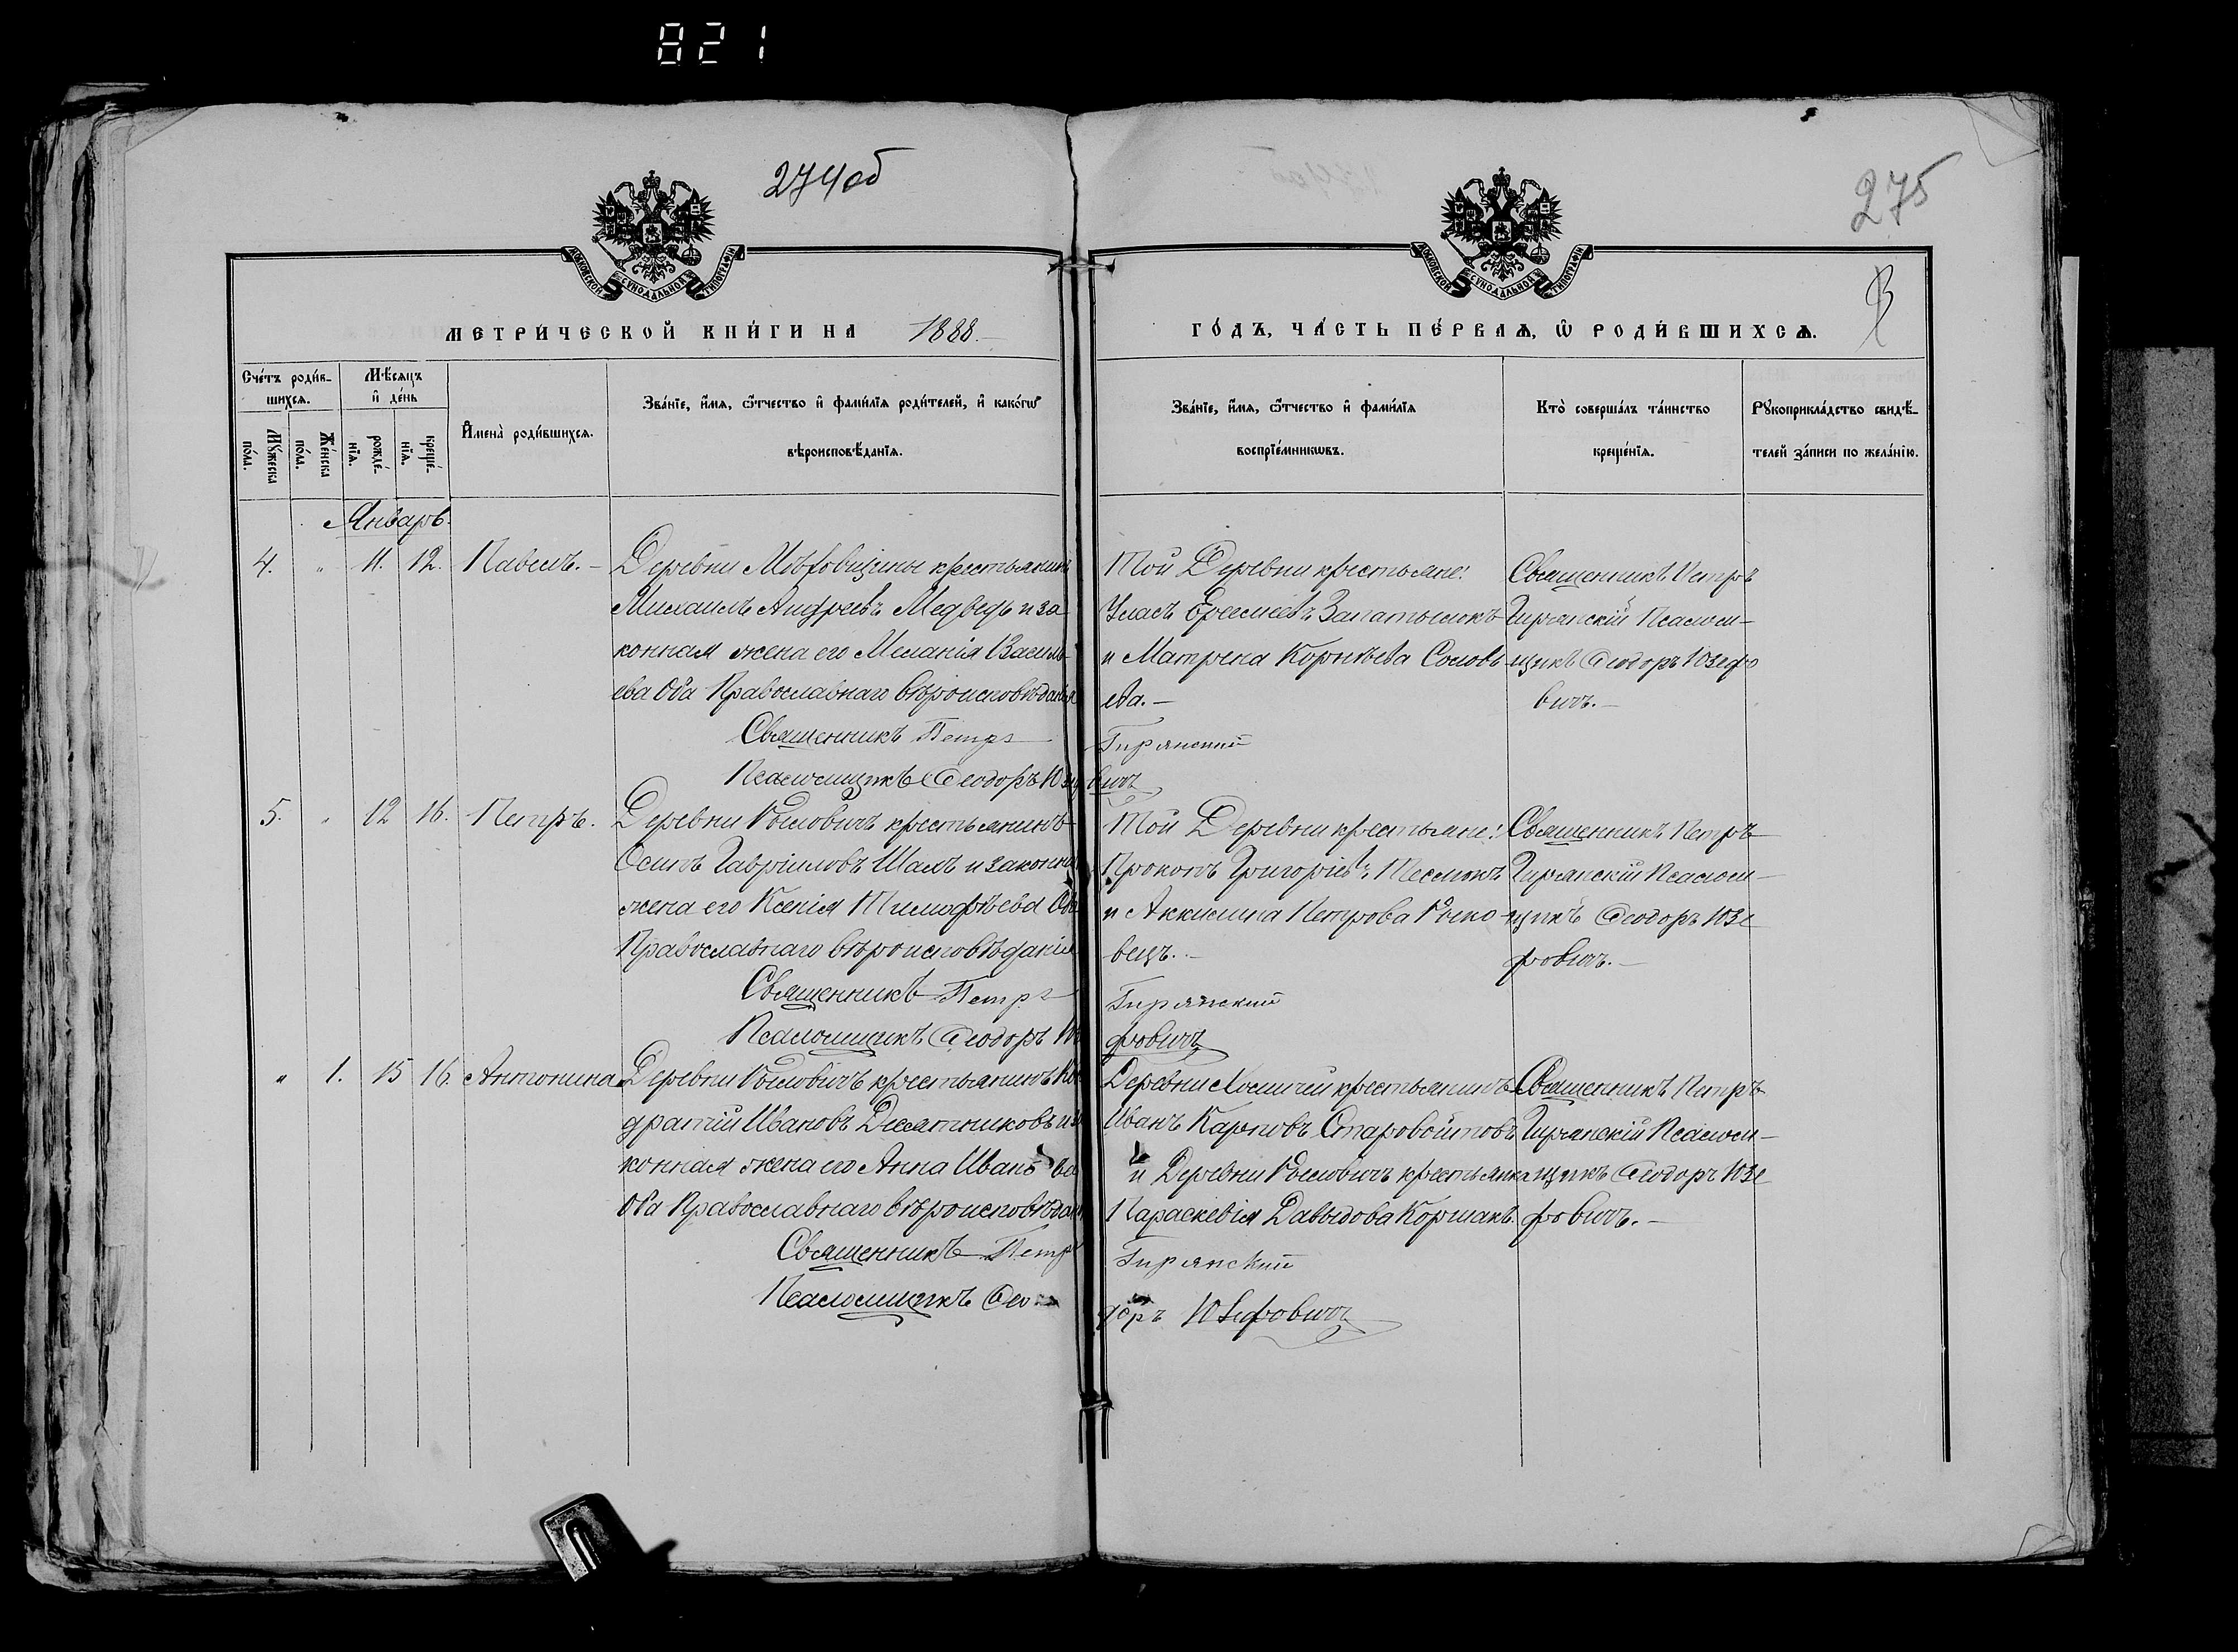 821
274об
275
МОСКОВСКОЙ СѴНОДАЛЬНОЙ ТИПОГРАФІИ
МОСКОВСКОЙ СѴНОДАЛЬНОЙ ТИПОГРАФІИ
МЕТРИ́ЧЕСКОЙ КНИ́ГИ НА 1888.
ГО́ДЪ, ЧА́СТЬ ПЕ́РВАѦ, Ѡ РОДИ́ВШИХСѦ.
Сче́тъ роди́в-
шихсѧ.
Мꙋ́жеска по́ла.
Же́нска по́ла.
Мѣ́сѧцъ
и҆ де́нь
рожде́-нїѧ.
креще́-нїѧ.
И҆мена̀ роди́вшихсѧ.
Зва́нїе, и҆́мѧ, ѻ҆́тчество и҆ фами́лїѧ роди́телей, и҆ како́гѡ
вѣроисповѣ́данїѧ.
Зва́нїе, и҆́мѧ, ѻ҆́тчество и҆ фами́лїѧ
воспрїе́мникѡвъ.
Кто̀ соверша́лъ та́инство
креще́нїѧ.
Рꙋкоприкла́дство свидѣ́-
телей за́писи по жела́нїю.
Январь.
4. " 11. 12. Павелъ. –
Деревни крестьянинъ
Михаилъ Андреевъ Медведь и за
конная жена его Меланія Василь-
ева Оба Православнаго вѣроисповѣданія
Священникъ Петръ Гирянский
Псаломщикъ Ѳеодоръ Юзефовичъ
Той Деревни крестьяне:
Уласъ
и Матрена Корнѣева Соловь-
ева. –
Священникъ Петръ
Гирянскій Псалом-
щикъ Ѳеодоръ Юзефо
вичъ. –
5. " 12 16. Петръ.
Деревни крестьянинъ
Осипъ Гавріиловъ и законная
жена его Ксенія Тимофѣева Оба
Православнаго вѣроисповѣданія
Священникъ Петръ Гирянский
Псаломщикъ Ѳеодоръ Юзефовичъ
Той Деревни крестьяне:
Прокопъ Григоріевъ
и Аккилина Петрова
вецъ. –
Священникъ Петръ
Гирянскій Псалом-
щикъ Ѳеодоръ Юзе
фовичъ. –
" 1. 15 16. Антонина
Деревни крестьянинъ Кон
дратій Ивановъ Десятниковъ и за
конная жена его Анна Иванова
Оба Православнаго вѣроисповѣданія
Священникъ Петръ Гирянский
Псаломщикъ Ѳеодоръ Юзефовичъ
Деревни крестьянинъ
Иванъ Карповъ Старовойтовъ
и Деревни крестьянка
Параскевія Давыдова Коршакъ.
Священникъ Петръ
Гирянскій Псалом-
щикъ Ѳеодоръ Юзе
фовичъ. –